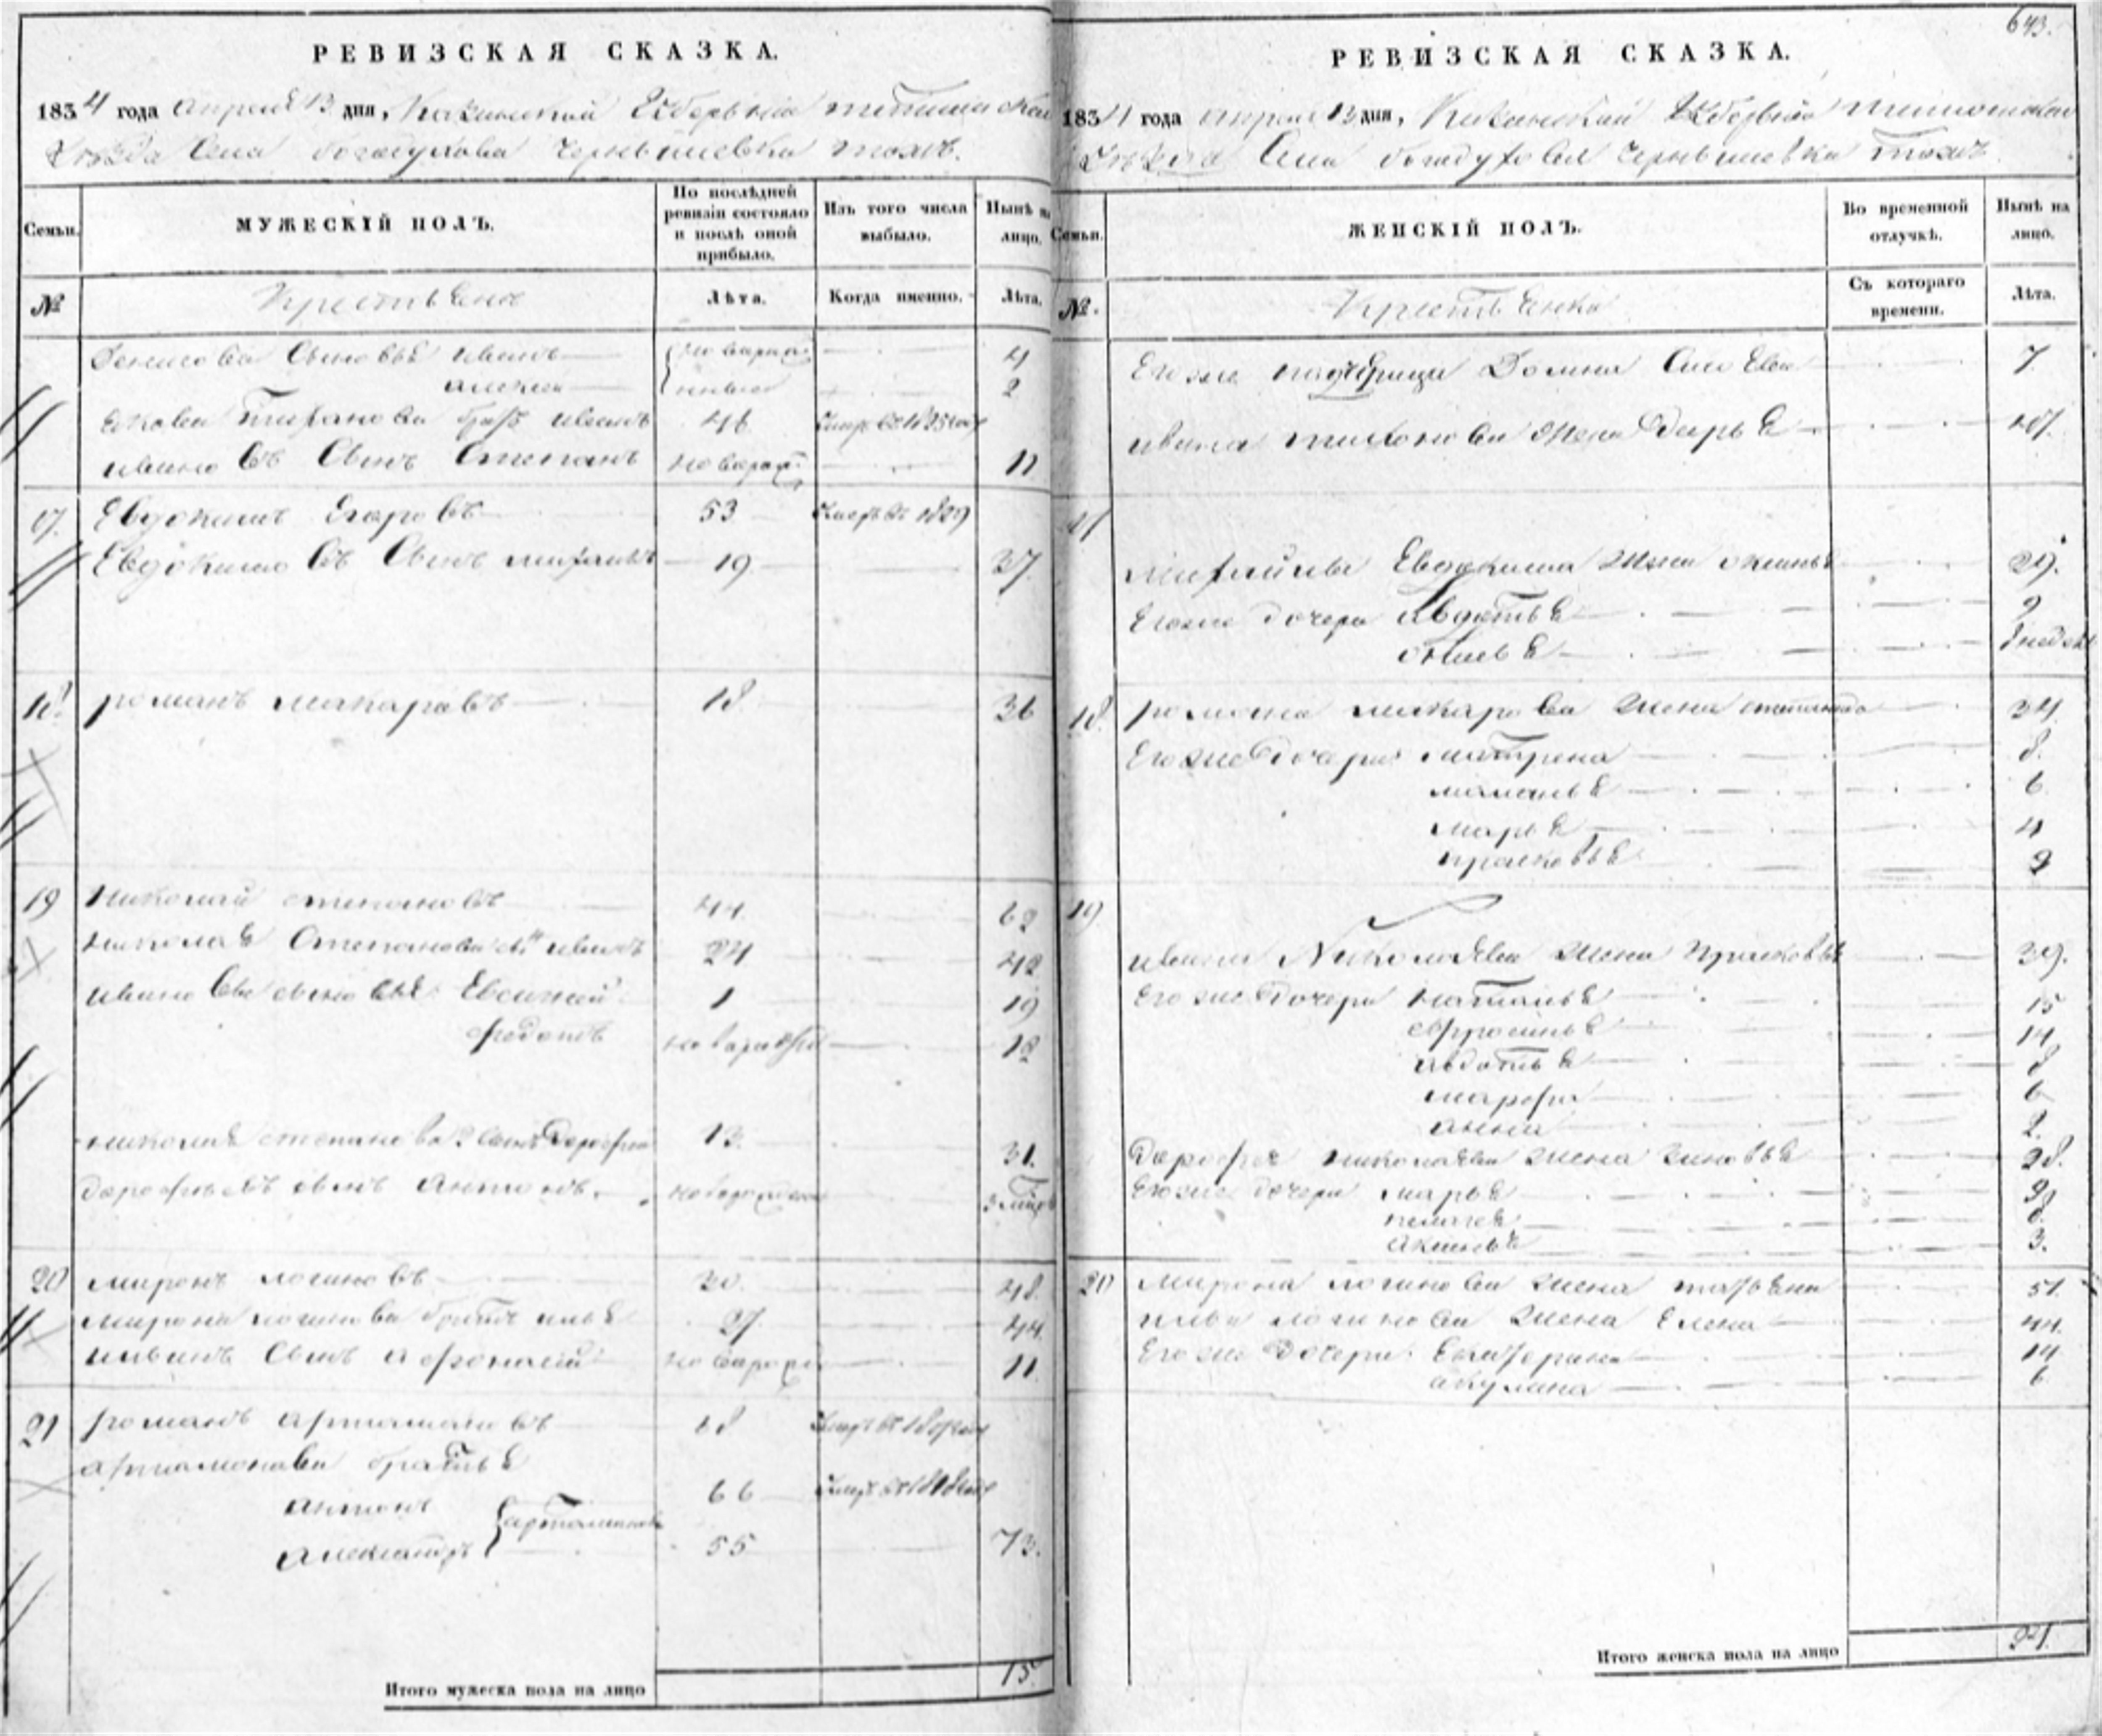 РЕВИЗСКАЯ СКАЗКА.
1834 года апреля 13 дня, Казанской Губернiи тетюшской
Уезда Села богадухова Чернышевка тожъ.
Семьи.
МУЖЕСКІЙ ПОЛЪ.
По послѣдней ревизіи состояло и послѣ оной прибыло.
Изъ того числа выбыло.
Нынѣ на лицо.
№
Крестьяне
Лѣта.
Когда именно.
Лѣта.
сыновьѣ иванъ 4
алексеи 2
братъ иванъ 46
ивановъ Сынъ Степанъ новорож 11
17. Евдокимъ Егоровъ 53 Умеръ въ 1829
Евдокимовъ Сынъ 19. 37.
18. романъ макаровъ 18. 36
19 Николай степановъ 44. 62
николаѣ Степанова сынъ иванъ 24 42
ивановы сыновьѣ Евсигней 1 19
федотъ новорожден 12
николаѣ степанова 2 сынъ Дорофеи 13. 31.
дорофеевъ сынъ Антонъ. новорожден
20 миронъ логиновъ 30. 48.
мирона логинова братъ ильѣ 27. 44.
ильинъ Сынъ афонасей новорож 11.
21 романъ артамоновъ 68
артамонова братьѣ
антонъ 66
александръ 55 73.
артамоновы
Итого мужеска пола на лицо 15.
643.
РЕВИЗСКАЯ СКАЗКА.
1834 года апреля 13 дня, Казанской Губернiи тетюшской
Уезда Села богадухова Чернышевка тожъ
Семьи.
ЖЕНСКІЙ ПОЛЪ.
Во временной отлучкѣ.
Нынѣ на лицо.
№.
Крестьянки
Съ котораго времени.
Лѣта.
Егоже падчерица Домна 7.
ивана жена Дарьѣ 47.
17
Евдокимова жена 29.
Егоже дочери Авдотьѣ 9
18. романа макарова жена степанида 34.
Егоже дочери матрена 8.
маланьѣ 6.
марьѣ 4
прасковьѣ 2
19.
ивана Николаева жена прасковьѣ 39.
Егоже дочери натальѣ 15
ефросиньѣ 14
авдотьѣ 8
марфа 6
анна 2.
Дорофея николаева жена зиновьѣ 28.
Егоже дочери марьѣ 9
пелагеѣ 8.
аксиньѣ 3.
20 мирона логинова жена татьяна 51.
ильи логинова жена Елена 44.
Егоже дочери Екатерина 14
акулина 6
Итого женска пола на лицо 21.